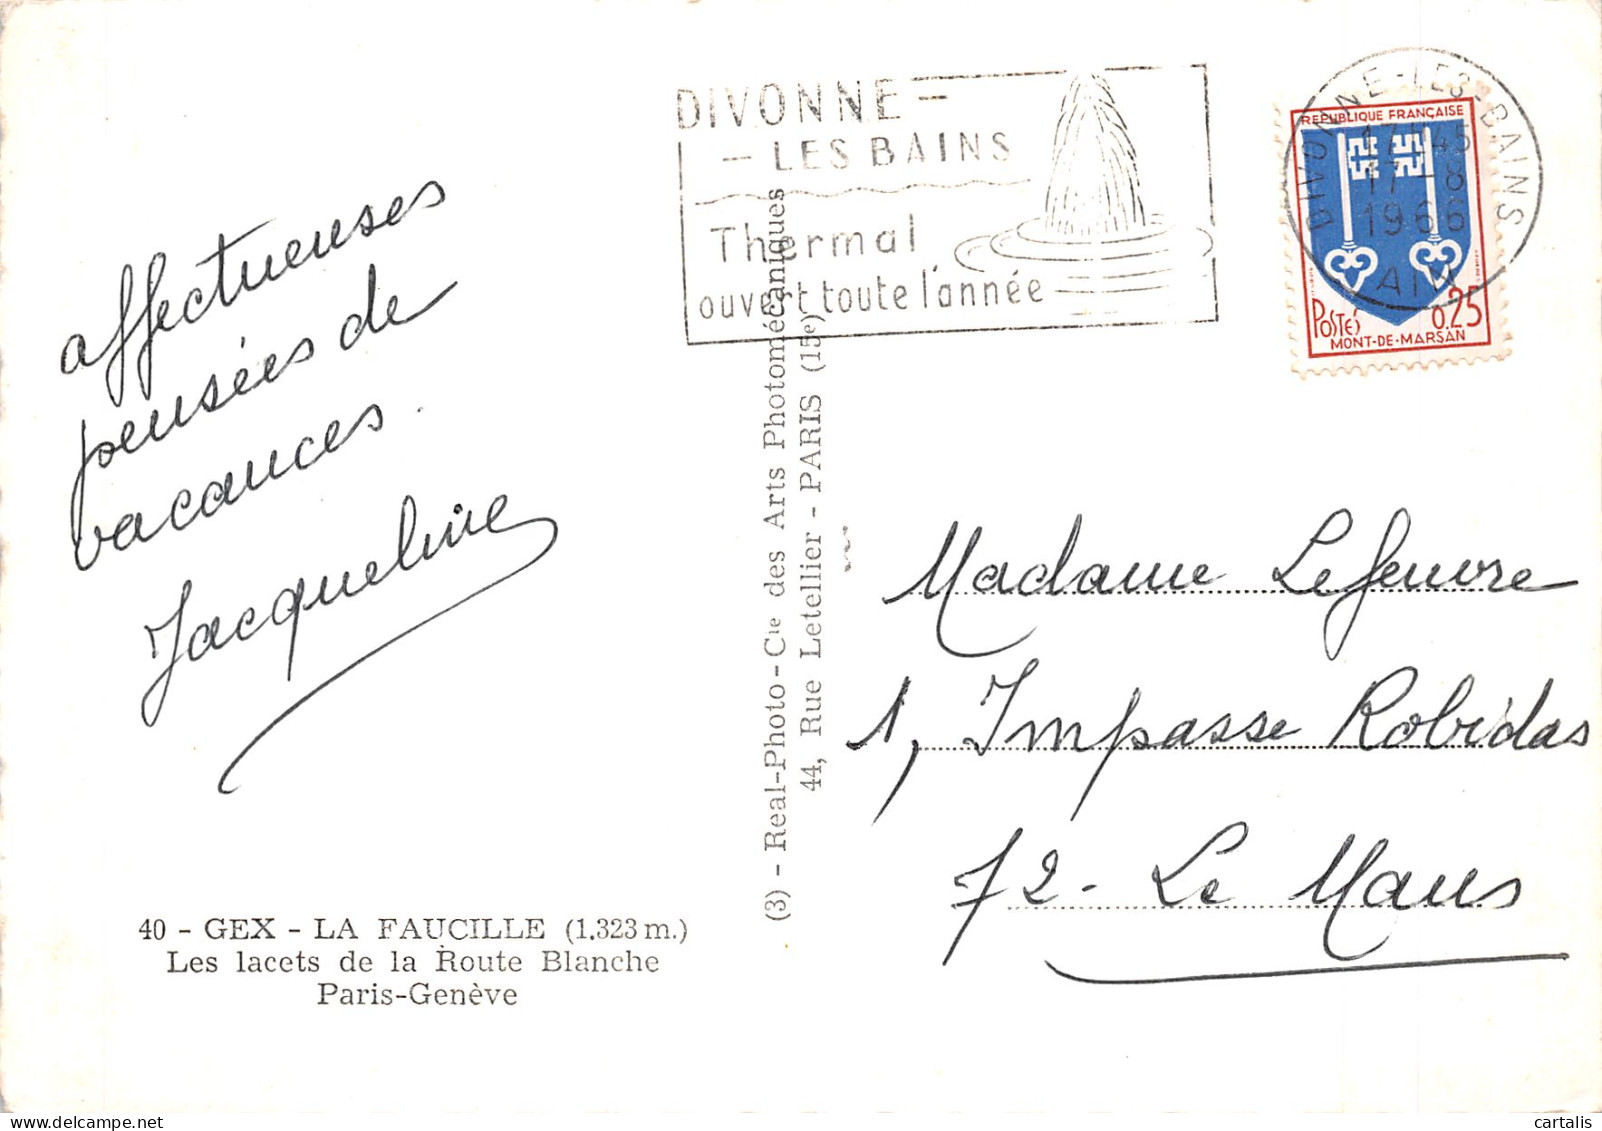 affectueuses
pensées de
vacances.
Jacqueline
40 - GEX - LA FAUCILLE (1.323 m.)
Les lacets de la Route Blanche
Paris-Genève
(3) - Real-Photo-Cie des Arts Photomécaniques
44, Rue Letellier - PARIS (15e)
DIVONNE -
- LES BAINS
Thermal
ouvert toute l'année
DIVONNE-LES-BAINS
17H45
17-8
1966
AIN
REPUBLIQUE FRANÇAISE
POSTES 0.25
MONT-DE-MARSAN
Madame Lefeuvre
1, Impasse Robidas
72 - Le Mans
cartalis
www.delcampe.net